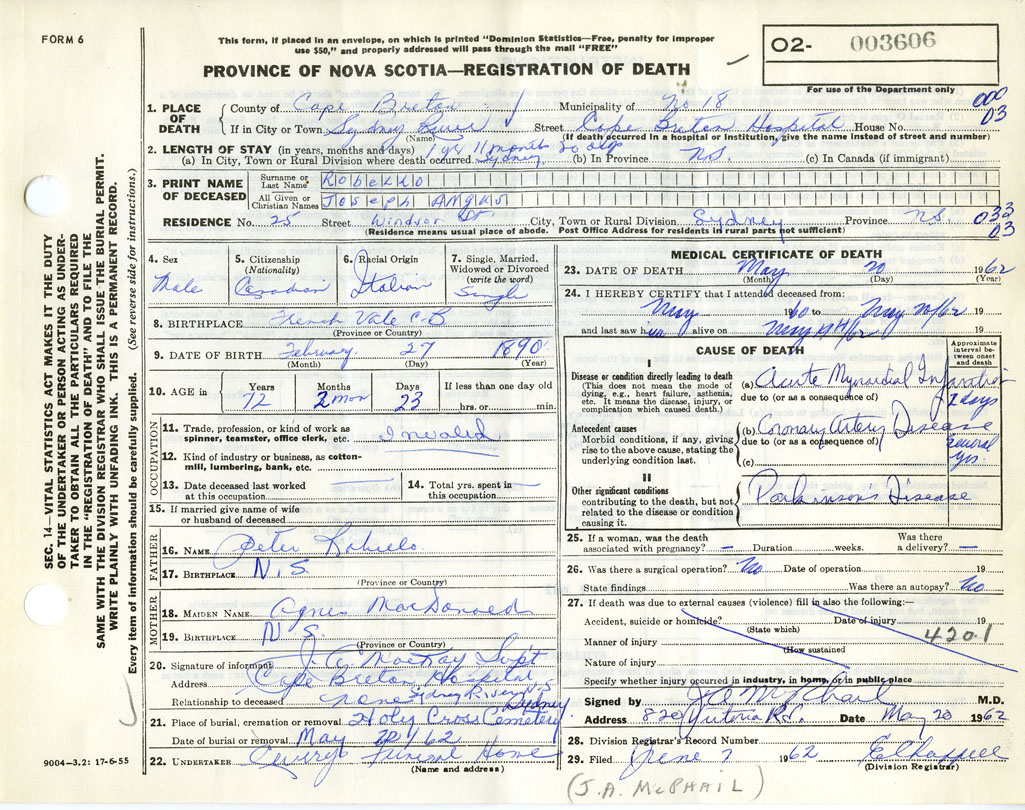 FORM 6
This form, if placed in an envelope, on which is printed "Dominion Statistics—Free, penalty for improper
use $50," and properly addressed will pass through the mail "FREE"
PROVINCE OF NOVA SCOTIA—REGISTRATION OF DEATH
O2- 003606
For use of the Department only
000
03
1. PLACE OF DEATH
County of Cape Breton
Municipality of No 18
If in City or Town Sydney River Street Cape Breton Hospital House No.
(Name) (If death occurred in a hospital or institution, give the name instead of street and number)
2. LENGTH OF STAY (in years, months and days) 1 yr 11 months 20 days
(a) In City, Town or Rural Division where death occurred. Sydney (b) In Province N.S. (c) In Canada (if immigrant)
3. PRINT NAME OF DECEASED
Surname or Last Name Robello
All Given or Christian Names Joseph Angus
RESIDENCE No. 25 Street Windsor St. City, Town or Rural Division Sydney Province N.S.
033
03
(Residence means usual place of abode. Post Office Address for residents in rural parts not sufficient)
4. Sex Male
5. Citizenship (Nationality) Canadian
6. Racial Origin Italian
7. Single, Married, Widowed or Divorced (write the word) Single
8. BIRTHPLACE French Vale C.B
(Province or Country)
9. DATE OF BIRTH February 27 1890
(Month) (Day) (Year)
10. AGE in Years 72 Months 2 mon Days 23 If less than one day old hrs. or min.
OCCUPATION
11. Trade, profession, or kind of work as spinner, teamster, office clerk, etc. Invalid
12. Kind of industry or business, as cotton-mill, lumbering, bank, etc.
13. Date deceased last worked at this occupation
14. Total yrs. spent in this occupation
15. If married give name of wife or husband of deceased
FATHER
16. NAME Peter
17. BIRTHPLACE N.S.
(Province or Country)
MOTHER
18. MAIDEN NAME Agnes MacDonald
19. BIRTHPLACE N S.
(Province or Country)
20. Signature of informant J. A. MacKay Supt
Address Cape Breton Hospital
Sydney River N.S
Relationship to deceased none
21. Place of burial, cremation or removal Holy Cross Cemetery Sydney
Date of burial or removal May 22/62
22. UNDERTAKER Curry's Funeral Home
(Name and address)
9004—3.2: 17-6-55
MEDICAL CERTIFICATE OF DEATH
23. DATE OF DEATH May 20 1962
(Month) (Day) (Year)
24. I HEREBY CERTIFY that I attended deceased from:
May 1960 to May 20/62 19
and last saw him alive on May 19/62 19
CAUSE OF DEATH
Approximate interval between onset and death
I
Disease or condition directly leading to death
(This does not mean the mode of dying, e.g., heart failure, asthenia, etc. It means the disease, injury, or complication which caused death.)
(a) Acute Myocardial Infarction
due to (or as a consequence of) 7 days
Antecedent causes
Morbid conditions, if any, giving rise to the above cause, stating the underlying condition last.
(b) Coronary Artery Disease
due to (or as a consequence of) several yrs.
(c)
II
Other significant conditions
contributing to the death, but not related to the disease or condition causing it.
Parkinson's Disease
25. If a woman, was the death associated with pregnancy? — Duration weeks. Was there a delivery? —
26. Was there a surgical operation? No Date of operation 19
State findings Was there an autopsy? No
27. If death was due to external causes (violence) fill in also the following:—
Accident, suicide or homicide? Date of injury 19
(State which)
420.1
Manner of injury
(How sustained
Nature of injury
Specify whether injury occurred in industry, in home, or in public place
Signed by J A McPhail M.D.
Address 820 Victoria Rd. Date May 20 1962
28. Division Registrar's Record Number
29. Filed June 7 1962 E Chappell
(Division Registrar)
(J.A. McPHAIL)
SEC. 14—VITAL STATISTICS ACT MAKES IT THE DUTY
OF THE UNDERTAKER OR PERSON ACTING AS UNDER-
TAKER TO OBTAIN ALL THE PARTICULARS REQUIRED
IN THE "REGISTRATION OF DEATH" AND TO FILE THE
SAME WITH THE DIVISION REGISTRAR WHO SHALL ISSUE THE BURIAL PERMIT.
WRITE PLAINLY WITH UNFADING INK. THIS IS A PERMANENT RECORD.
Every item of information should be carefully supplied. (See reverse side for instructions.)